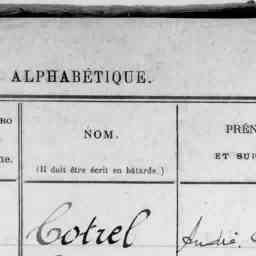 ALPHABÉTIQUE.
RO
NOM.
PRÉN
ne.
(Il doit être écrit en bâtarde.)
ET SUR
Cotrel
André.